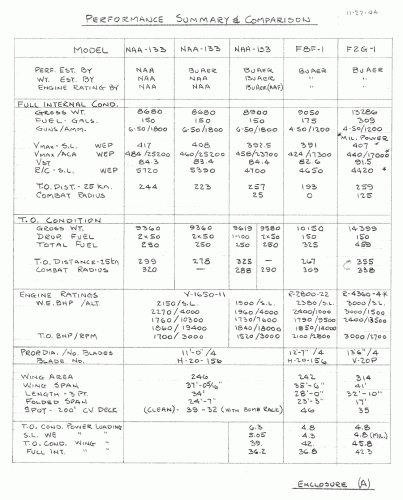 11-27-44
PERFORMANCE SUMMARY & COMPARISON
MODEL NAA-133 NAA-133 NAA-133 F8F-1 F2G-1
PERF. EST. BY NAA BUAER BUAER BUAER BUAER
WT. EST. BY NAA NAA BUAER " "
ENGINE RATING BY NAA NAA BUAER(AAF) " "
FULL INTERNAL COND.
GROSS WT. 8680 8680 8900 9050 13286
FUEL - GALS. 150 150 150 175 309
GUNS/AMM. 6-50/1800 6-50/1800 6-50/1800 4-50/1200 4-50/1200
*MIL. POWER
VMAX - S.L. WEP 417 408 392.5 391 407 *
VMAX/ACA WEP 484/25200 460/25200 458/23700 424/17300 440/17000 *
VST 84.3 83.4 84.4 82.6 91.5
R/C - S.L. WEP 5720 5390 4700 4650 4420 *
T.O. DIST. - 25 KN. 244 223 257 193 259
COMBAT RADIUS 25 0 125
T.O. CONDITION
GROSS WT. 9360 9360 9619 9580 10150 14399
DROP FUEL 2x50 2x50 1-100 2x50 150 150
TOTAL FUEL 250 250 250 250 325 459
T.O. DISTANCE-25KN 299 278 325 — 267 355
COMBAT RADIUS 320 — 288 290 309 338
ENGINE RATINGS V-1650-11 R-2800-22 R-4360-4
W.E. BHP / ALT. 2150/S.L. 1900/S.L. 2380/S.L. 3000/S.L.
2270/4000 1960/4000 2400/1000 3000/1500
1760/10300 1730/7600 1790/9500 2400/13500
1860/19400 1840/18000 1850/14000
T.O. BHP/RPM 1700/3000 1520/3000 2100/2800 3000/2700
PROP DIA./NO. BLADES 11'-0"/4 12'-7"/4 13'6"/4
BLADE NO. H-20-156 H-20-156 V-20P
WING AREA 246 242 314
WING SPAN 37'-0 5/16" 35'-6" 41'
LENGTH - 3 PT. 34' 28'-0" 32'-10"
FOLDED SPAN 24'-7" 23'-3" 17'
SPOT - 200' CV DECK (CLEAN) - 39 - 32 (WITH BOMB RACK) 46 35
T.O. COND. POWER LOADING 6.3 4.8 4.8
S.L. WE " " 5.05 4.3 4.8 (MIL.)
T.O. COND. WING " 39. 42. 45.8
FULL INT. " " 36.2 36.8 42.3
ENCLOSURE (A)